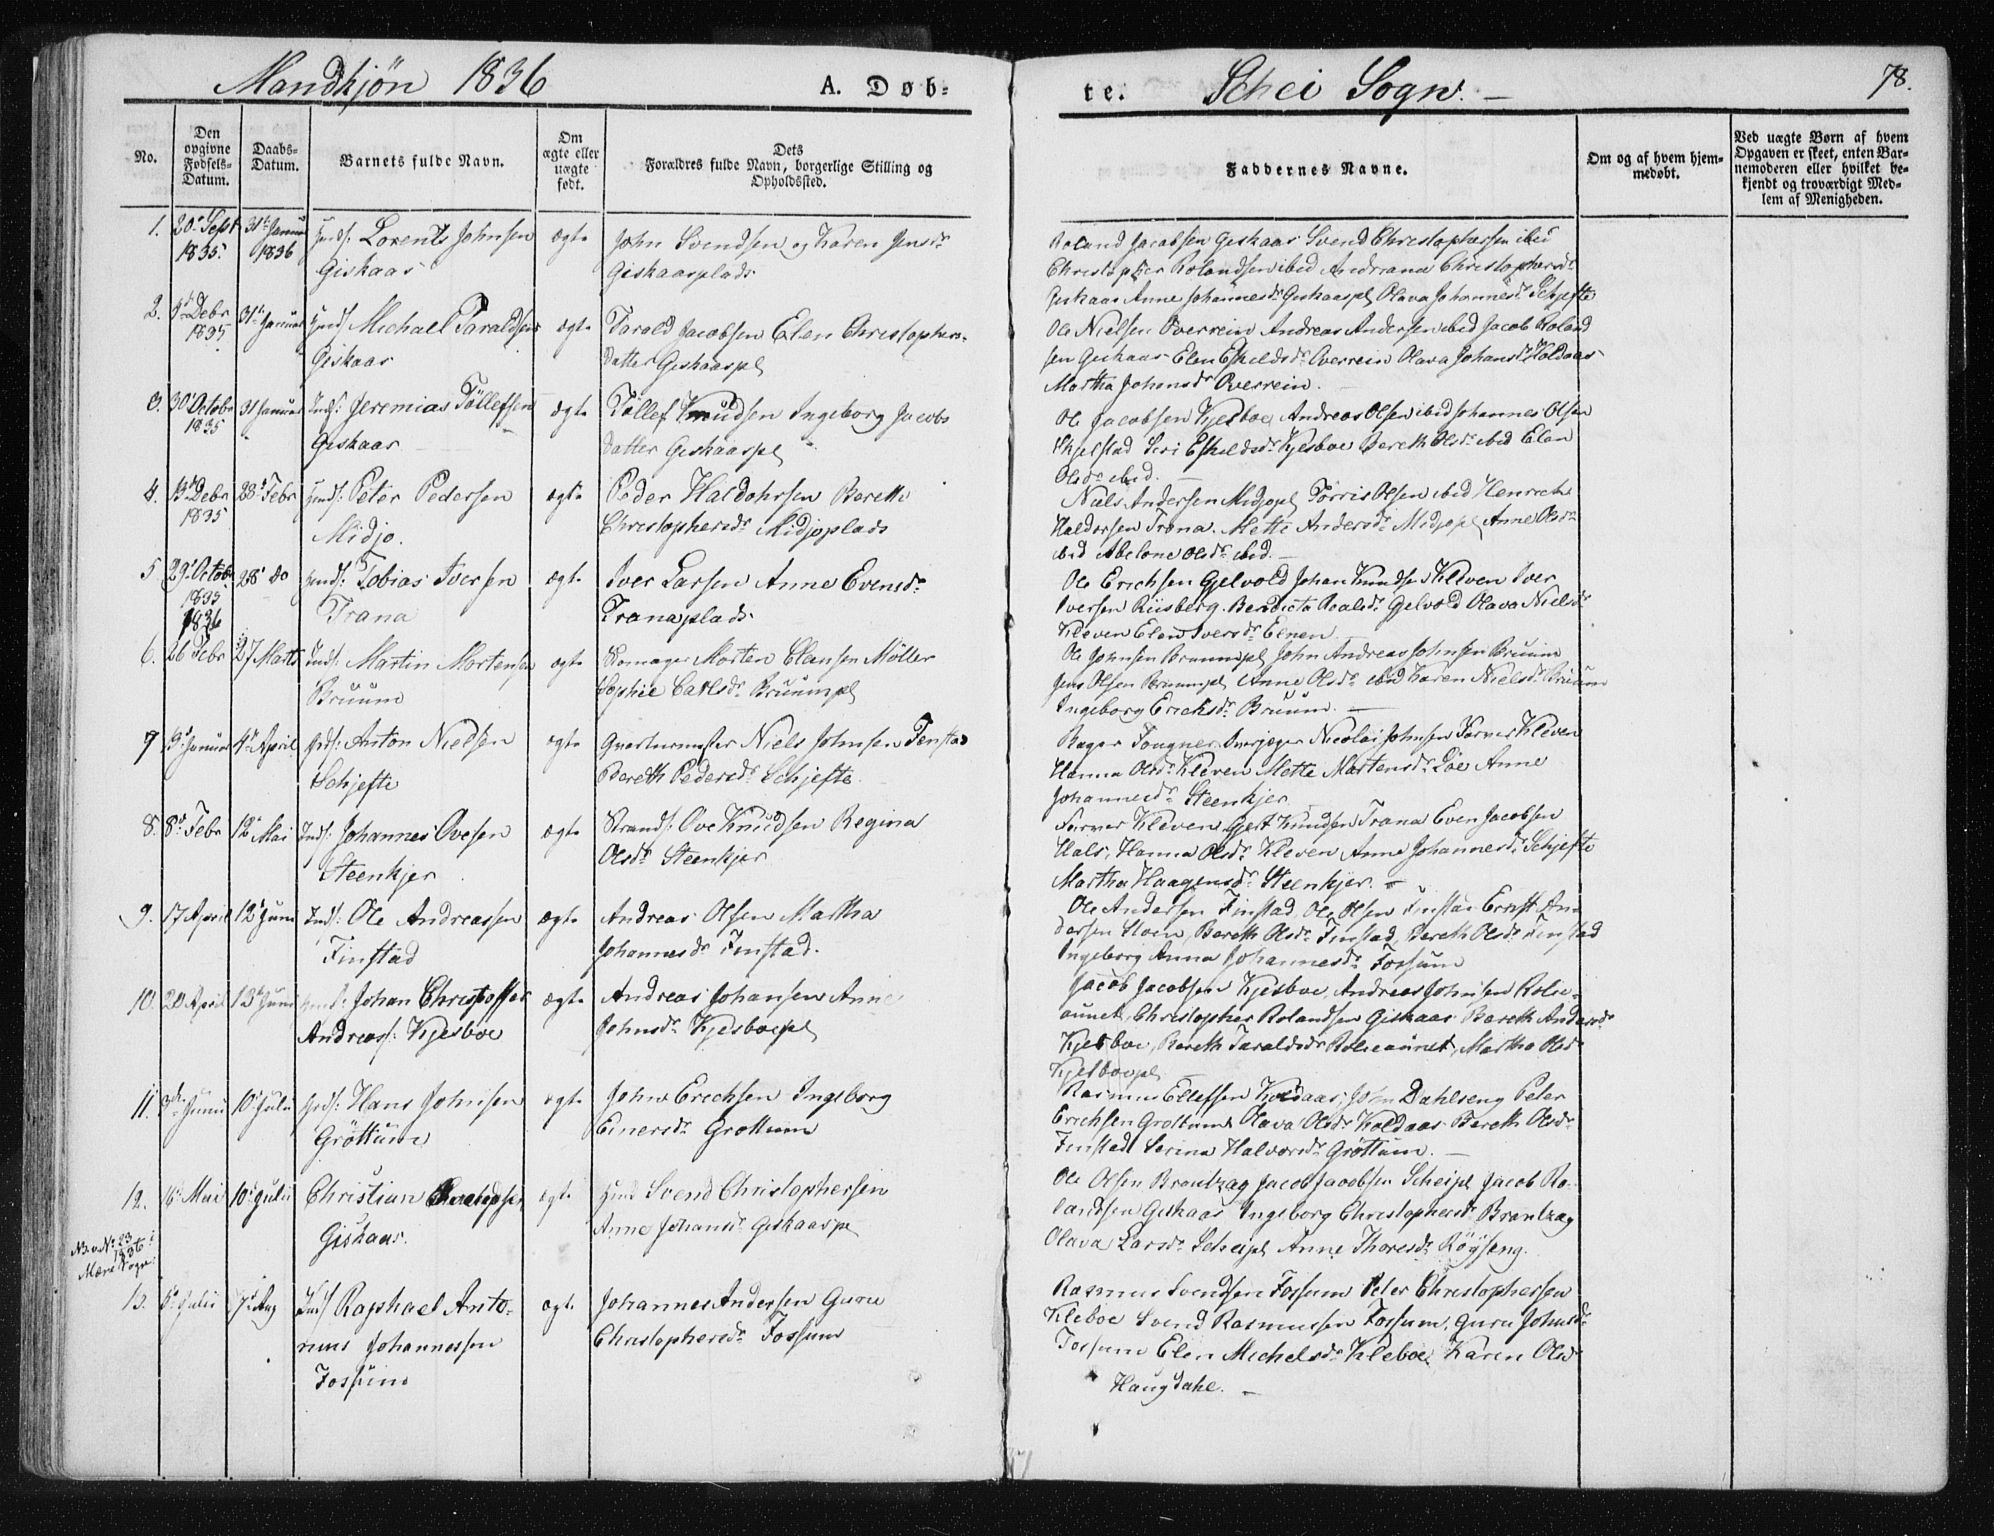 Mandkjön 1836
A. Døb-
te.
Schei Sogn.
78.
No.
Den opgivne Fødsels-Datum.
Daabs-Datum.
Barnets fulde Navn.
Om ægte eller uægte født.
Dets Forældres fulde Navn, borgerlige Stilling og Opholdssted.
Faddernes Navne.
Om og af hvem hjem-
medøbt.
Ved uægte Børn af hvem
Opgaven er skeet, enten Bar-
nemoderen eller hvilket be-
kjendt og troværdigt Med-
lem af Menigheden.
1. 20de Sept 1835. 31te Januar 1836 Lorents Johnsen Giskaas ægte John Svendsen og Karen Jensdr Giskaasplads
Roland Jacobsen Giskaas Svend Christophersen ibid
Christopher Rolandsen ibid Andriana Christophersdr
Giskaas Anne Johannesdr Giskaaspl Olava Johannesdr Schjefte
2. 9d Debr 1835 31te Januar Michael Taraldsen Giskaas ægte Tarald Jacobsen Elen Christophers-
datter Giskaaspl
Ole Nielsen Overrein Andreas Andersen ibid Jacob Roland
sen Giskaas Elen Eskeldsdr Overrein Olava Johansdr Koldaas
Martha Johansdr Overrein.
3. 30 Octobr 1835 31 Januar Jeremias Töllefsen Giskaas ægte Töllef Knudsen Ingeborg Jacobs
datter Giskaaspl
Ole Jacobsen Kjesboe Andreas Olsen ibid Johannes Olsen
Skjelstad Seri Eskeldsdr Kjesboe Bereth Olsdr ibid Elen
Olsdr ibid.
4. 13d Debr 1835 28d Febr Peter Pedersen Midjo. ægte Peder Haldorsen Bereth
Christophersdr Midjoplads
Niels Andersen Midjopl Torris Olsen ibid Henrich
Haldorsen Trana. Mette Andersdr Midjopl Anne Olsdr
ibid Abelone Olsdr ibid.
5 29d Octobr 1835 28d do Tobias Iversen Trana ægte Iver Larsen Anne Evensdr
Tranaplads
Ole Erichsen Gjelvold Johan Knudsen Kleven Iver
Iversen Riisberg. Bendicta Roalsdr Gelvold Olava Nielsdr
Kleven Elen Iversdr Elnen
1836
6. 26 Febr 27 Marts Martin Mortensen Bruum ægte Skomager Morten Clausen Möller
Sophie Carlsdr Bruumpl
Ole Johnsen Bruumpl John Andreas Johnsen Bruum
Jens Olsen Bruumpl Anne Olsdr ibid Karen Nielsdr Bruum
Ingeborg Ericksdr Bruum.
7 9d Januar 4d April Anton Nielsen Schjefte ægte Qvartermester Niels Johnsen Fenstad
Bereth Pedersdr Schjefte
Fougner Overjæger Nicolai Johnsen Farver Kleven
Hanna Olsdr Kleven Mette Martensdr Löe Anne
Johannesdr Steenkjer
8. 8d Febr 12d Mai Johannes Ovesen Steenkjer ægte Strands: Ove Knudsen Regina
Olsdr Steenkjer
Farver Kleven Gert Knudsen Trana Even Jacobsen
Hals, Hanna Olsdr Kleven Anne Johannesdr Schjefte
Martha Haagensdr Steenkjer.
9. 17 April 12d Juni Ole Andreassen Finstad ægte Andreas Olsen Martha
Johannesdr Finstad.
Ole Andersen Finstad, Ole Olsen Finstad Ernst An
dersen Hoen, Bereth Olsdr Finstad, Bereth Olsdr Finstad
Ingeborg Anna Johannesdr Fossum
10. 20 April 12d Juni Johan Christoffer
Andreass: Kjesboe ægte Andreas Johansen Anne
Johnsdr Kjesboepl
Jacob Jacobsen Kjesboe, Andreas Johnsen Rolie-
aunet Christopher Rolandsen Giskaas Bereth Andersdr
Kjesboe, Bereth Taraldsdr Rolieaunet, Martha Olsdr
Kjesboepl
11. 3de Juni 10d Julii Hans Johnsen Gröttum ægte John Erichsen Ingeborg
Einersdr Grottum
Rasmus Ellefsen Koldaas, John Dahlseng Peter
Erichsen Grottum Olava Olsdr Koldaas Bereth Olsdr
Finstad Serina Halvorsdr Gröttum.
12. 16 Mai 10d Julii Christian Svendsen Giskaas. ægte Svend Christophersen
Anne Johansdr Giskaaspl
Ole Olsen Brantzag Jacob Jacobsen Scheipl Jacob Ro-
landsen Giskaas Ingeborg Christophersdr Brantzag
Olava Larsdr Scheipl Anne Thoresdr Röyseng.
No 23 1836 i Mære Sogn
13. 5d Julii 7d Aug Raphael Anto-
nius Johannessen Fossum ægte Johannes Andersen Guru
Christophersdr Fossum
Rasmus Svendsen Fossum Peter Christophersen
Kleboe Svend Rasmussen Fossum, Guru Johnsdr
Fossum Elen Michelsdr Kleboe, Karen Olsdr
Haugdahl.